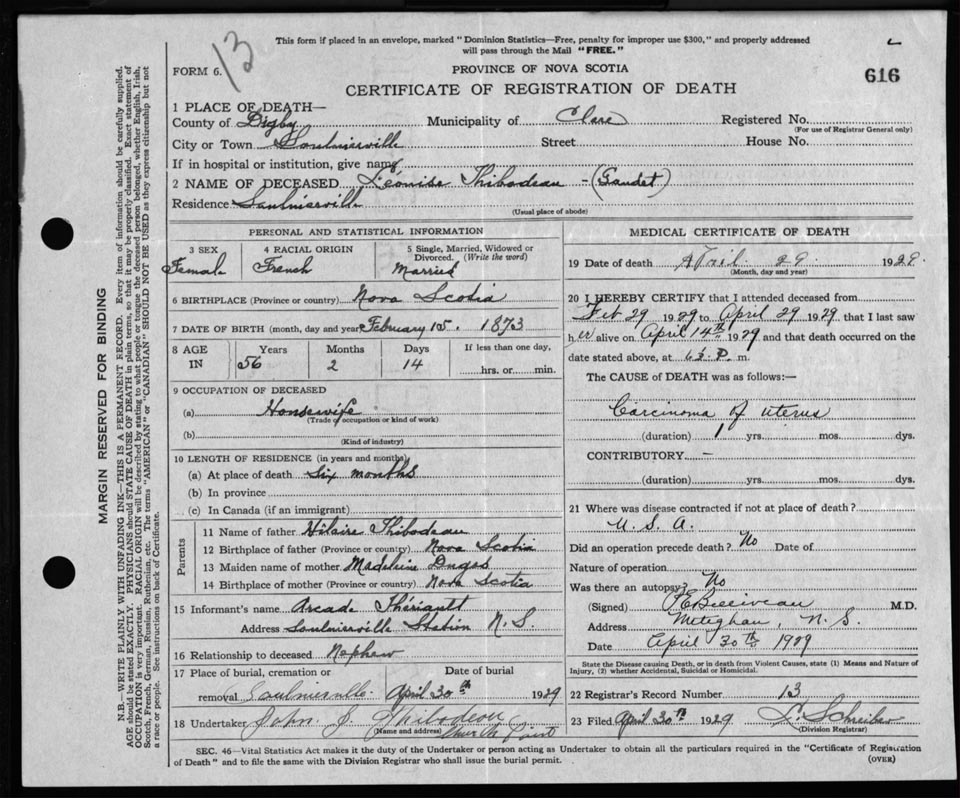 13
This form if placed in an envelope, marked "Dominion Statistics—Free, penalty for improper use $300," and properly addressed
will pass through the Mail "FREE."
FORM 6.
PROVINCE OF NOVA SCOTIA
616
CERTIFICATE OF REGISTRATION OF DEATH
1 PLACE OF DEATH—
County of Digby Municipality of Clare Registered No.
(For use of Registrar General only)
City or Town Saulnierville Street House No.
If in hospital or institution, give name
2 NAME OF DECEASED Léonise Thibodeau - (Gaudet)
Residence Saulnierville
(Usual place of abode)
PERSONAL AND STATISTICAL INFORMATION
3 SEX 4 RACIAL ORIGIN 5 Single, Married, Widowed or
Divorced. (Write the word)
Female French Married
6 BIRTHPLACE (Province or country) Nova Scotia
7 DATE OF BIRTH (month, day and year) February 15. 1873
8 AGE Years Months Days If less than one day,
IN 56 2 14 hrs. or min.
9 OCCUPATION OF DECEASED
(a) Housewife
(Trade occupation or kind of work)
(b)
(Kind of industry)
10 LENGTH OF RESIDENCE (in years and months)
(a) At place of death Six months
(b) In province
(c) In Canada (if an immigrant)
Parents
11 Name of father Hilaire Thibodeau
12 Birthplace of father (Province or country) Nova Scotia
13 Maiden name of mother Madeleine Dugas
14 Birthplace of mother (Province or country) Nova Scotia
15 Informant's name Arcade Thériault
Address Saulnierville Station N.S.
16 Relationship to deceased Nephew
17 Place of burial, cremation or Date of burial
removal Saulnierville April 30th 1929
18 Undertaker John J. Thibodeau
(Name and address) Church Point
MEDICAL CERTIFICATE OF DEATH
19 Date of death April 29 1929.
(Month, day and year)
20 I HEREBY CERTIFY that I attended deceased from
Feb 29 1929 to April 29 1929 that I last saw
h er alive on April 14th 1929 and that death occurred on the
date stated above, at P. m.
The CAUSE of DEATH was as follows:—
Carcinoma of uterus
(duration) 1 yrs. mos. dys.
CONTRIBUTORY. —
(duration) yrs. mos. dys.
21 Where was disease contracted if not at place of death?
U. S. A.
Did an operation precede death? No Date of
Nature of operation
Was there an autopsy? No
(Signed) Belliveau M.D.
Address Meteghan, N. S.
Date April 30th 1929
State the Disease causing Death, or in death from Violent Causes, state (1) Means and Nature of
Injury, (2) whether Accidental, Suicidal or Homicidal.
22 Registrar's Record Number 13
23 Filed April 30th 1929 L. Schreiber
(Division Registrar)
SEC. 46—Vital Statistics Act makes it the duty of the Undertaker or person acting as Undertaker to obtain all the particulars required in the "Certificate of Registration
of Death" and to file the same with the Division Registrar who shall issue the burial permit.
(OVER)
MARGIN RESERVED FOR BINDING
N.B.—WRITE PLAINLY WITH UNFADING INK—THIS IS A PERMANENT RECORD. Every item of information should be carefully supplied.
AGE should be stated EXACTLY. PHYSICIANS should STATE CAUSE OF DEATH in plain terms, so that it may be properly classified. Exact statement of
OCCUPATION is very important. RACIAL ORIGIN will be described by stating to what people or tongue the deceased person belonged, whether English, Irish,
Scotch, French, German, Russian, Ruthenian, etc. The terms "AMERICAN" or "CANADIAN" SHOULD NOT BE USED as they express citizenship but not
a race or people. See instructions on back of Certificate.